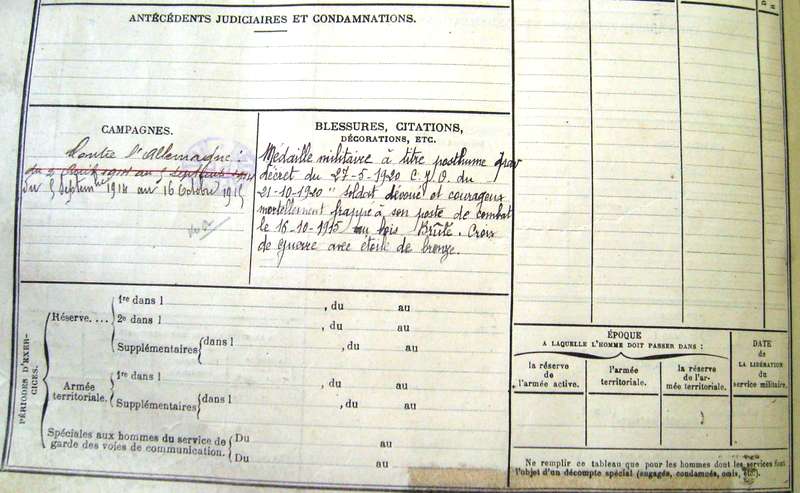 ANTÉCÉDENTS JUDICIAIRES ET CONDAMNATIONS.
CAMPAGNES.
Contre l'Allemagne :
du 2 Août 1914 au 5 Septembre 1914
du 5 Septembre 1914 au 16 Octobre 1915
BLESSURES, CITATIONS,
DÉCORATIONS, ETC.
Médaille militaire à titre posthume par
décret du 27-5-1920 J.O. du
21-10-1920 " soldat dévoué et courageux
mortellement frappé à son poste de combat
le 16-10-1915 au bois Brûlé. Croix
de guerre avec étoile de bronze.
PÉRIODES D'EXER-
CICES.
Réserve....
1re dans l , du au
2e dans l , du au
Supplémentaires dans l , du au
Armée
territoriale.
1re dans l , du au
Supplémentaires dans l , du au
Spéciales aux hommes du service de
garde des voies de communication.
Du au
Du au
ÉPOQUE
A LAQUELLE L'HOMME DOIT PASSER DANS :
la réserve
de
l'armée active.
l'armée
territoriale.
la réserve
de l'ar-
mée territoriale.
DATE
de
LA LIBÉRATION
du
service militaire.
Ne remplir ce tableau que pour les hommes dont les services font
l'objet d'un décompte spécial (engagés, condamnés, omis, etc.).